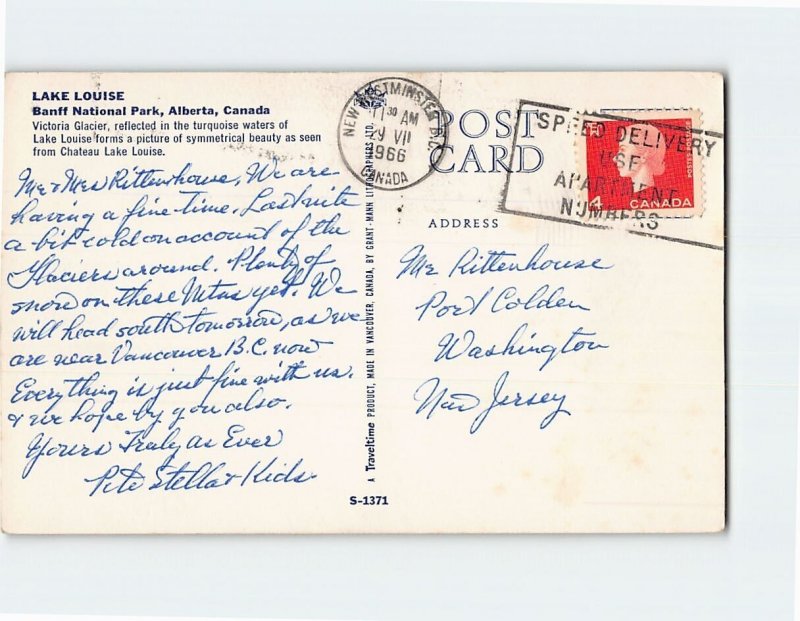 LAKE LOUISE
Banff National Park, Alberta, Canada
Victoria Glacier, reflected in the turquoise waters of
Lake Louise forms a picture of symmetrical beauty as seen
from Chateau Lake Louise.
Mr & Mrs Rittenhouse, We are
having a fine time. Last nite
a bit cold on account of the
Glaciers around. Plenty of
snow on these Mtns yet. We
will head south tomorrow, as we
are near Vancouver B.C. now
Everything is just fine with us.
& we hope by you also.
Yours Truly as Ever
Pete Stella & Kids
NEW WESTMINSTER B.C.
11 30 AM
29 VII
1966
CANADA
POST
CARD
ADDRESS
SPEED DELIVERY
USE
APARTMENT
NUMBERS
4
CANADA
POSTES POSTAGE
Mr Rittenhouse
Port Colden
Washington
New Jersey
A Traveltime PRODUCT, MADE IN VANCOUVER, CANADA, BY GRANT-MANN LITHOGRAPHERS LTD.
S-1371